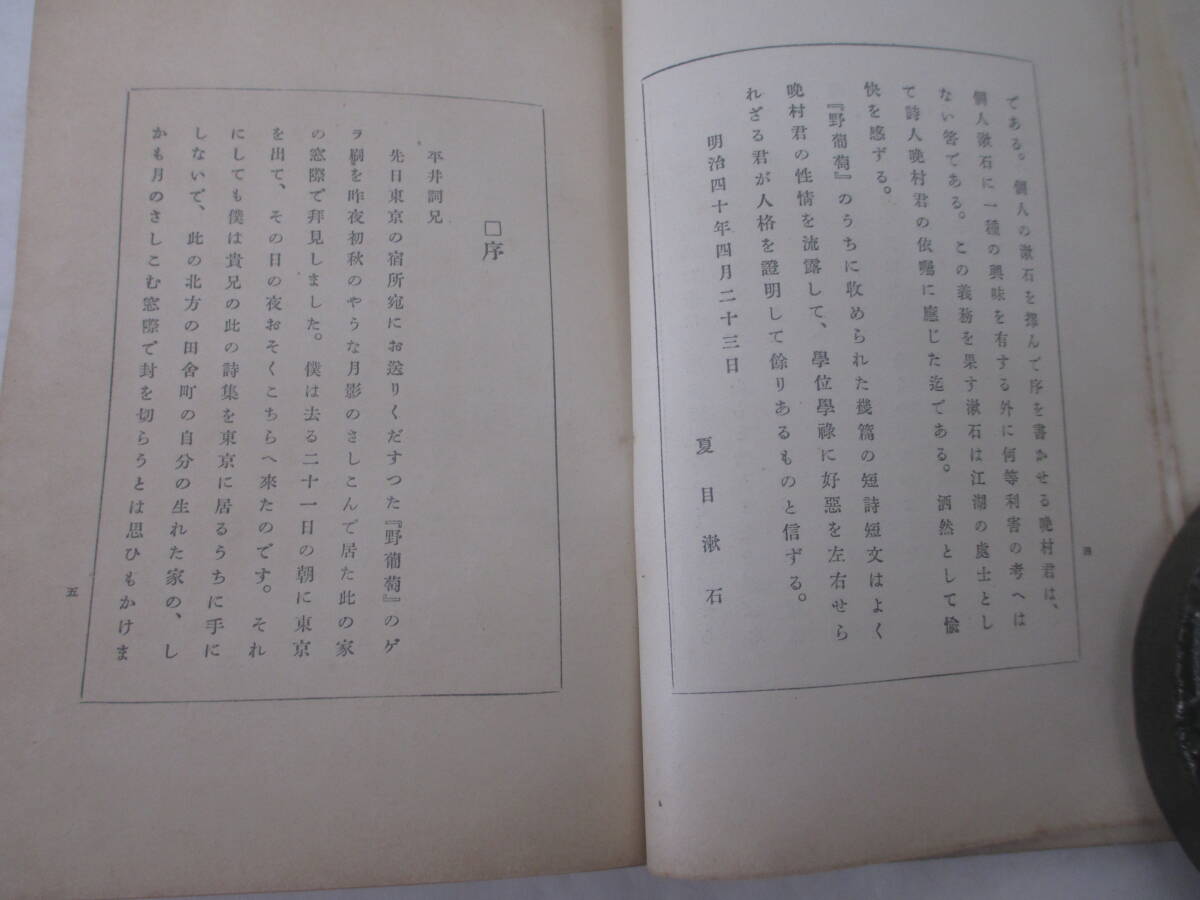 である。個人の漱石を擇んで序を書かせる晩村君は、
個人漱石に一種の興味を有する外に何等利害の考へは
ない筈である。この義務を果す漱石は江湖の處士とし
て詩人晩村君の依囑に應じた迄である。洒然として愉
快を感ずる。
『野葡萄』のうちに收められた幾篇の短詩短文はよく
晩村君の性情を流露して、學位學祿に好惡を左右せら
れざる君が人格を證明して餘りあるものと信ずる。
明治四十年四月二十三日
夏目漱石
四
□序
平井詞兄
先日東京の宿所宛にお送りくだすつた『野葡萄』のゲ
ラ刷を昨夜初秋のやうな月影のさしこんで居た此の家
の窓際で拜見しました。僕は去る二十一日の朝に東京
を出て、その日の夜おそくこちらへ來たのです。それ
にしても僕は貴兄の此の詩集を東京に居るうちに手に
しないで、此の北方の田舍町の自分の生れた家の、し
かも月のさしこむ窓際で封を切らうとは思ひもかけま
五